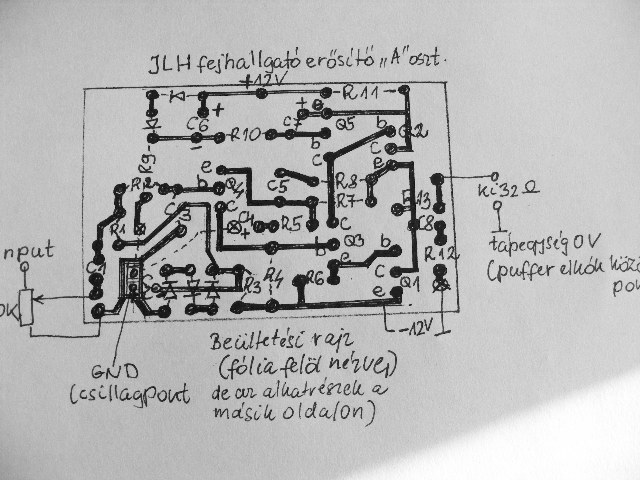 JLH fejhallgató erősítő „A" oszt.
+12V
R11
C6 + + e
R10 C7 Q5 b Q2
R9 b c c
e c e
R2 b Q4 C5 R8
R7 R13 Ki 32Ω
C3 c
R1 C4 + R5 c C8 tápegység 0V
nput b Q3 b R12 (puffer elkók közö
C1 e pon
R3 R4 R6 c Q1
0K e
−12V
Beültetési rajz
GND (fólia felöl nézve,
(csillagpont de az alkatrészek a
másik oldalon)